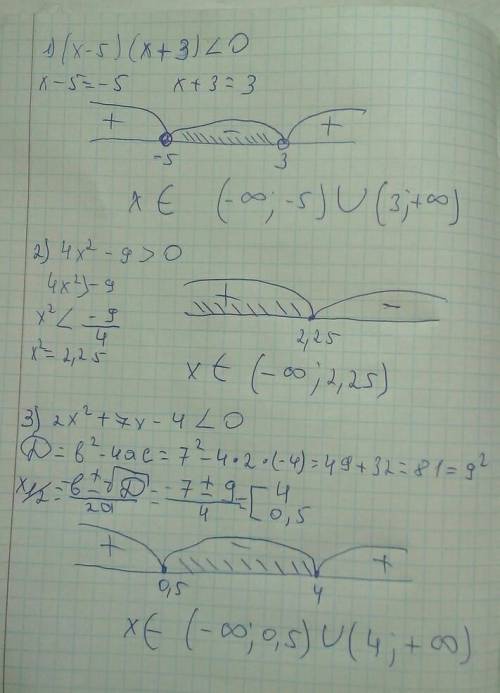 1) (x-5) (x+3) < 0
x-5=-5 x+3=3
+ - +
-5 3
x ∈ (-∞; -5) ∪ (3; +∞)
2) 4x² - 9 > 0
4x² > -9
+ -
x² < -9/4
2,25
x² = 2,25
x ∈ (-∞; 2,25)
3) 2x² + 7x - 4 < 0
D = b² - 4ac = 7² - 4·2·(-4) = 49 + 32 = 81 = 9²
x1/2 = -b±√D/2a = -7±9/4 = [4
0,5
+ - +
0,5 4
x ∈ (-∞; 0,5) ∪ (4; +∞)